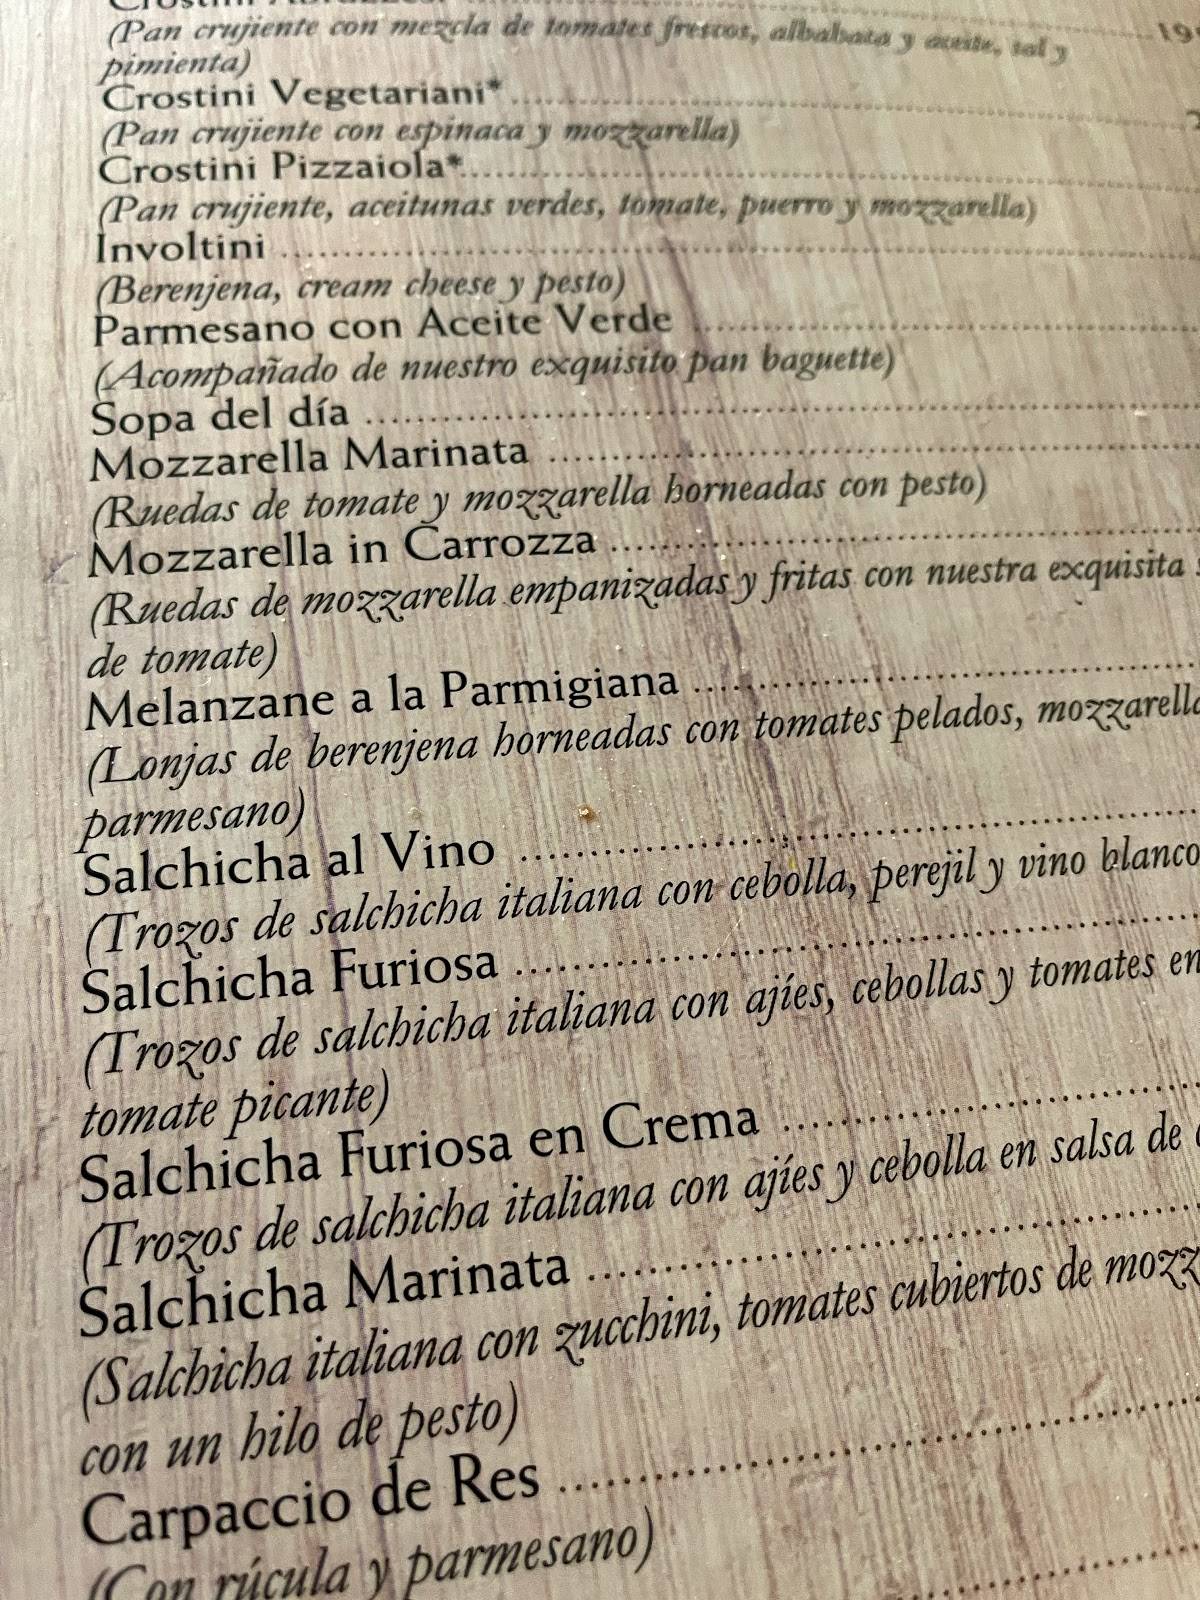 Crostini
(Pan crujiente con mezcla de tomates frescos, albahaca y aceite, sal y
pimienta)
Crostini Vegetariani*
(Pan crujiente con espinaca y mozzarella)
Crostini Pizzaiola*
(Pan crujiente, aceitunas verdes, tomate, puerro y mozzarella)
Involtini
(Berenjena, cream cheese y pesto)
Parmesano con Aceite Verde
(Acompañado de nuestro exquisito pan baguette)
Sopa del día
Mozzarella Marinata
(Ruedas de tomate y mozzarella horneadas con pesto)
Mozzarella in Carrozza
(Ruedas de mozzarella empanizadas y fritas con nuestra exquisita
de tomate)
Melanzane a la Parmigiana
(Lonjas de berenjena horneadas con tomates pelados, mozzarella
parmesano)
Salchicha al Vino
(Trozos de salchicha italiana con cebolla, perejil y vino blanco
Salchicha Furiosa
(Trozos de salchicha italiana con ajíes, cebollas y tomates en
tomate picante)
Salchicha Furiosa en Crema
(Trozos de salchicha italiana con ajíes y cebolla en salsa de
Salchicha Marinata
(Salchicha italiana con zucchini, tomates cubiertos de mozz
con un hilo de pesto)
Carpaccio de Res
(Con rúcula y parmesano)